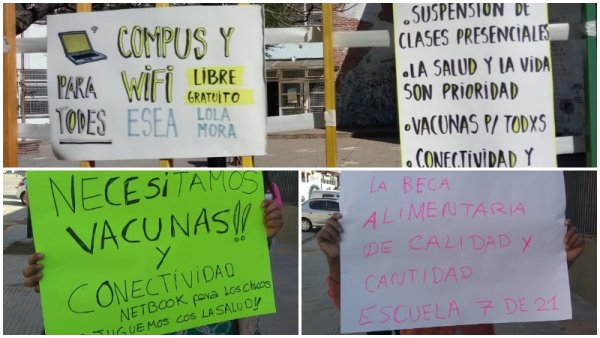 COMPUS Y
PARA
TODES
WiFi
LIBRE
GRATUITO
ESEA
LOLA
MORA
SUSPENSIÓN DE
CLASES PRESENCIALES
•LA SALUD Y LA VIDA
SON PRIORIDAD
•VACUNAS P/ TODXS
•CONECTIVIDAD Y
NECESITAMOS
VACUNAS!!
Y
CONECTIVIDAD
NETBOOK para LOS CHICOS
JUGUEMOS CON LA SALUD!!
LA BECA
ALIMENTARIA
DE CALIDAD Y
CANTIDAD
ESCUELA 7 DE 21